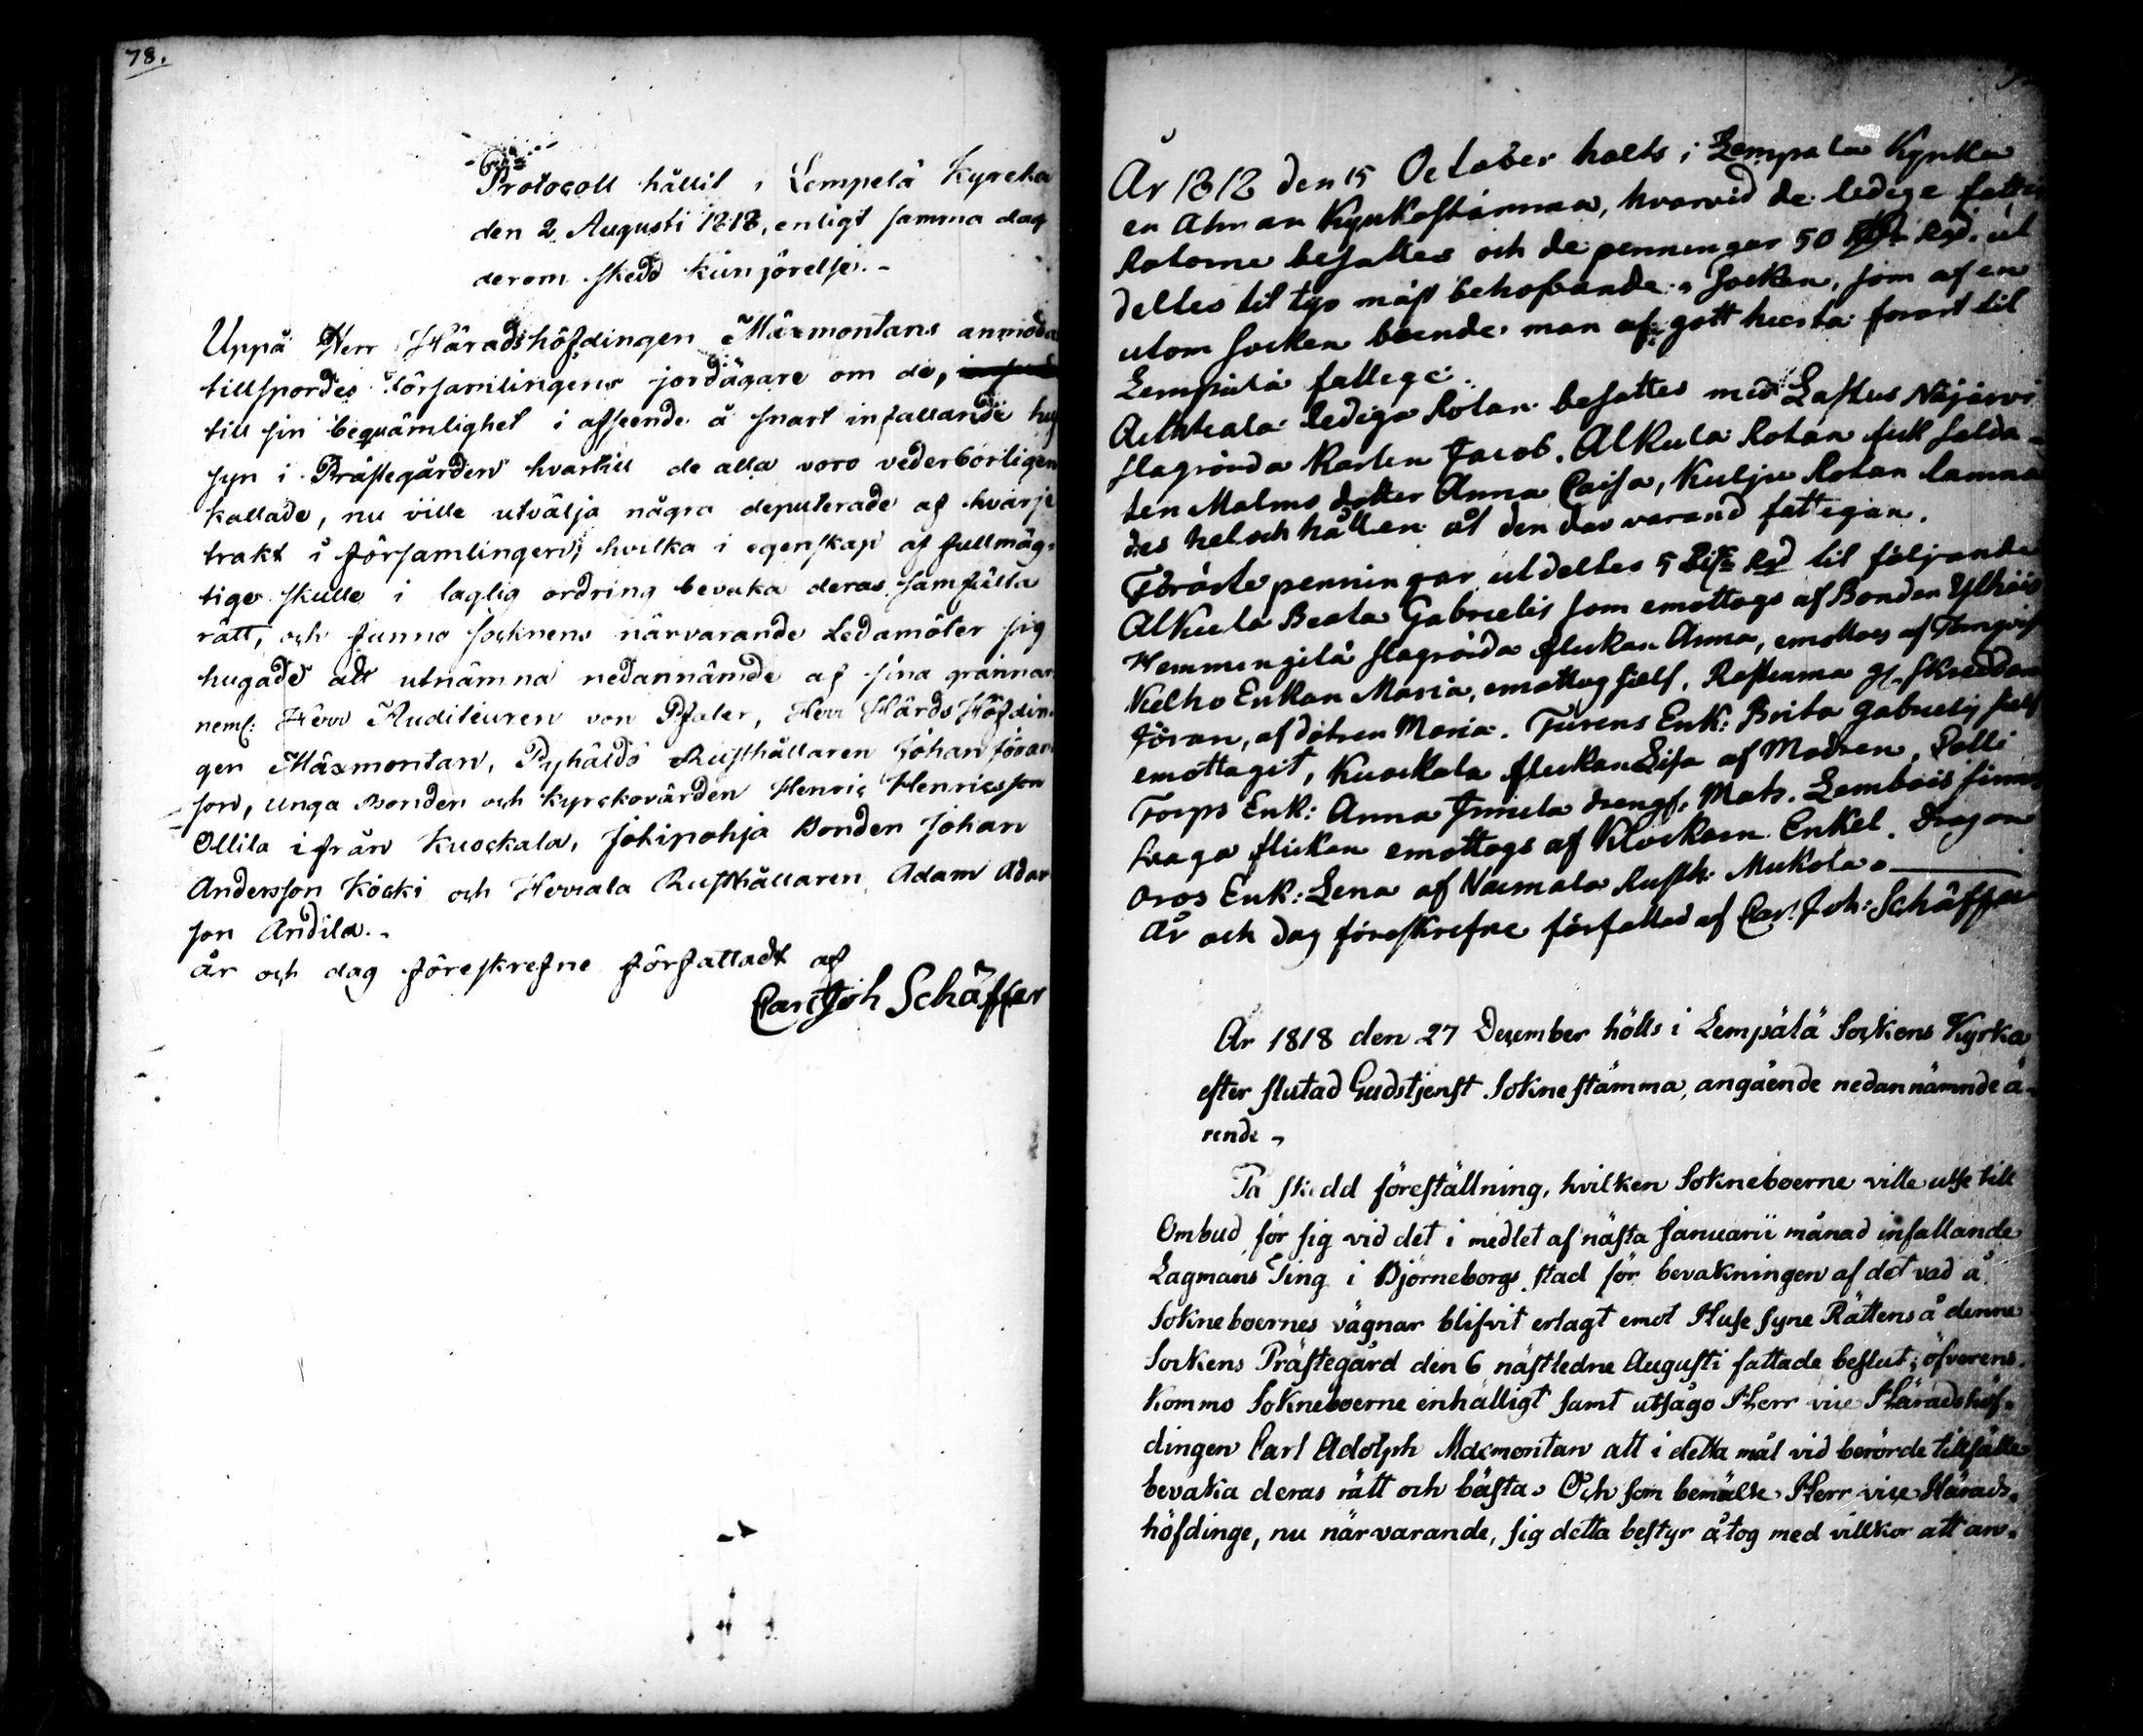 78.
Protocoll hållit i Lempelä Kyrcka
den 2 Augusti 1818, enligt samma dag
derom skedd kungörelse. -
Uppå Herr Häradshöfdingen Mäxmontans anmoda
tillspordes Församlingens jordägare om de,
till sin bequämlighet i afseende å snart infallande hus
syn i Prästegården hvartill de alla voro vederbörligen
kallade, nu ville utvälja några deputerade af hvarje
trakt i församlingen, hvilka i egenskap af fullmäg-
tige skulle i laglig ordring bevaka deras samfälta
rätt, och funno socknens närvarande Ledamöter sig
hugade att utnämna nedannämde af sina grannar
neml: Herr Auditeuren von Pfaler, Herr Härds Höfdin-
gen Mäxmontan, Pyhäldö Rusthållaren Johan Jöran
son, unga Bonden och kyrckovärden Henric Henricsson
Ollila ifrån Kuockala, Jokipohja Bonden Johan
Andersson Köcki och Herrala Rusthållaren Adam Adam
son Andila. -
år och dag föreskrefne författadt af
Carl Joh Schäffer
År 1818 den 15 October holts i Lempälä Kyrka
en Alman Kyrkostämma, hvarvid de ledige fattig
Rotorne besattes och de penningar 50 Rd. ut
deltes til tyo måst behofvande i Socken, som af en
utom socken boende man af gott hierta förart til
Lempälä fattige.
Achtiala lediga Rotan besattes med Lastus Näjärvi
slagrörda Karlen Jacob. Alkula Rotan fick Solda-
ten Malms dotter Anna Caisa, Kulju Rotan lamna
des hel och hållen åt den dar varand fattigan.
Förärte penningar utdeltes 5 Rd til följande
Alkula Beata Gabrielis som emottogs af Bonden Ylhäis
Hemmingilä slagröida flickan Anna, emottoes af
Kelho Enkan Maria, emottog sielf, Rastunma gl. Skreddar
Jöran, af dotren Maria. Turens Enk: Brita Gabrielis sielf
emottagit, Kuockala flickan Lisa af Modren, Palli
Torps Enk: Anna Junila drengs. Mats. Lembois finns
svaga flickan emottogs af Klockarn Enkel. Dragon
Oros Enk: Lena af Naimala Rusth: Mukola. -
År och dag föreskrefne författad af Carl Joh: Schäffer
År 1818 den 27 December hölts i Lempälä Sockens Kyrka
efter slutad Gudstjenst Soknestämma, angående nedannämnde ä-
rende -
På skedd föreställning, hvilken Sokneboerne ville utse till
Ombud för sig vid det i medlet af nästa Januarii månad infallande
Lagmans Ting i Björneborgs stad för bevakningen af det vad å
Sokneboernes vägnar blifvit erlagt emot Huse syne Rättens å denne
Sockens Prästegård den 6 nästledne Augusti fattade beslut; öfverens-
kommo Sokneboerne enhälligt samt utsågo Herr vice Häradshöf-
dingen Carl Adolph Mäxmontan att i detta mål vid berörde tillfälle
bevaka deras rätt och bästa. Och som bemälte Herr vice Härads-
höfdinge, nu närvarande, sig detta bestyr åtog med villkor att an-